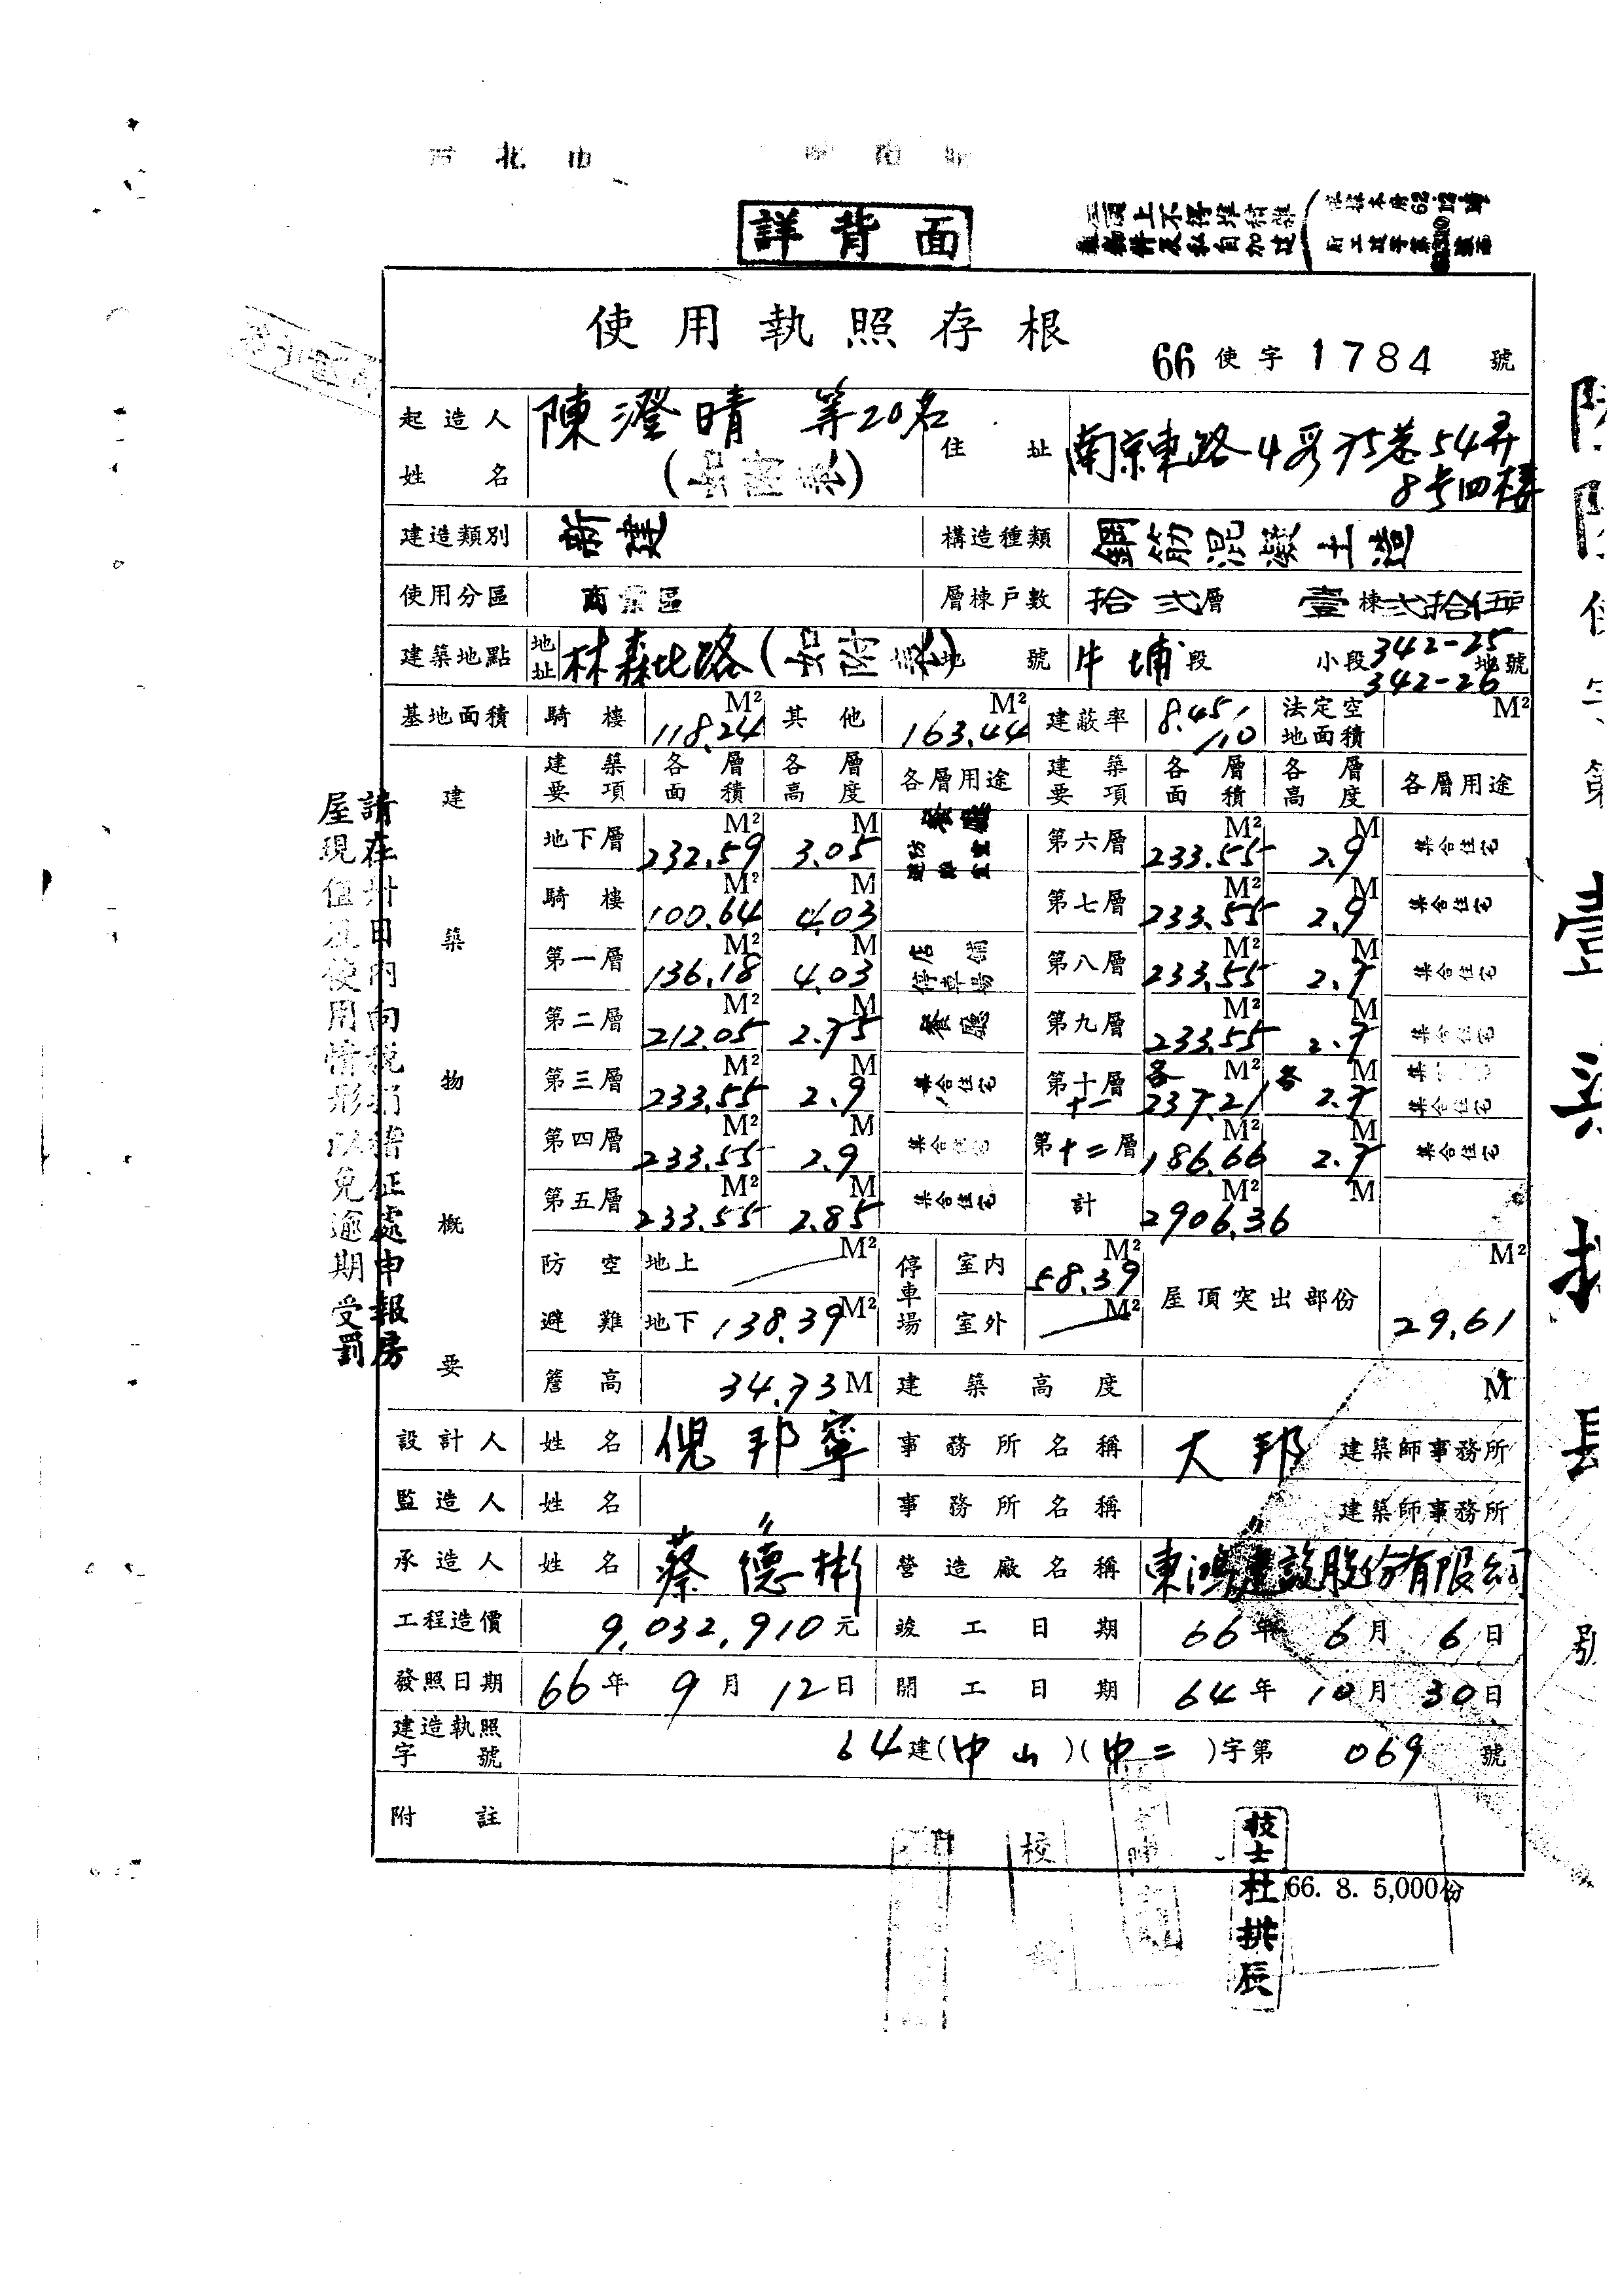 詳背面
使用執照存根
66使字1784號
起造人姓名 陳澄晴 等20名
住址 南京東路4段75巷54弄8号四樓
建造類別 新建 構造種類 鋼筋混凝土造
使用分區 商業區 層棟戶數 拾弍層 壹棟弍拾伍戶
建築地點 地址 林森北路 地號 牛埔段 小段 342-25 342-26 地號
基地面積 騎樓 118.24 M² 其他 163.44 M² 建蔽率 8.45/10 法定空地面積 M²
建築物概要
建築要項 各層面積 各層高度 各層用途 建築要項 各層面積 各層高度 各層用途
地下層 232.59 M² 3.05 M 餐廳 第六層 233.55 M² 2.9 M 集合住宅
騎樓 100.64 M² 4.03 M 第七層 233.55 M² 2.9 M 集合住宅
第一層 136.18 M² 4.03 M 店舖 停車場 第八層 233.55 M² 2.9 M 集合住宅
第二層 212.05 M² 2.75 M 餐廳 第九層 233.55 M² 2.9 M 集合住宅
第三層 233.55 M² 2.9 M 集合住宅 第十層 十一 各 237.21 M² 各 2.9 M 集合住宅
第四層 233.55 M² 2.9 M 集合住宅 第十二層 186.66 M² 2.9 M 集合住宅
第五層 233.55 M² 2.85 M 集合住宅 計 2906.36 M² M
防空避難 地上 M² 停車場 室內 58.39 M² 屋頂突出部份 29.61 M²
地下 138.39 M² 室外 M²
簷高 34.73 M 建築高度 M
設計人 姓名 倪邦寧 事務所名稱 大邦 建築師事務所
監造人 姓名 〃 事務所名稱 〃 建築師事務所
承造人 姓名 蔡德彬 營造廠名稱 東鴻建設股份有限公司
工程造價 9,032,910元 竣工日期 66年6月6日
發照日期 66年9月12日 開工日期 64年10月30日
建造執照字號 64建(中山)(中二)字第069號
附註
請在卅日內向稅捐稽征處申報房
屋現值及使用情形以免逾期受罰
校
技士杜拱辰
66. 8. 5,000份